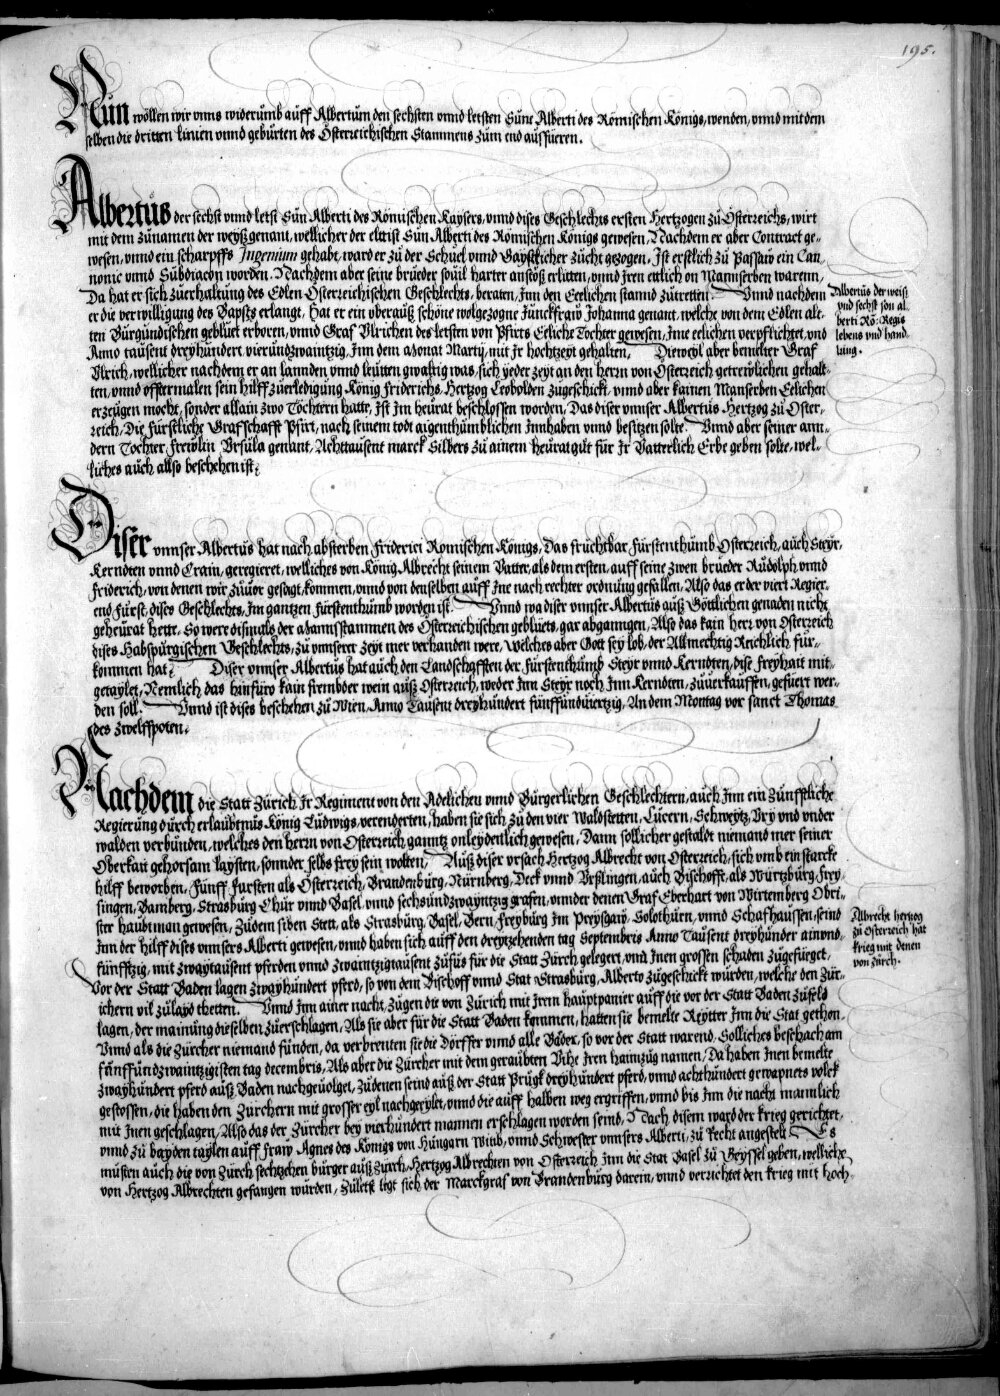 195.
Nun wöllen wir vnns widerumb auff Albertum den sechsten vnnd letsten Sune Alberti des Römischen Königs, wenden, vnnd mit dem
selben die dritten linien vnnd geburten des Österreichischen Stammens zum end ausfüeren.
Albertus der sechst vnnd letst Sun Alberti des Römischen Kaysers, vnnd dises Geschlechts ersten Hertzogen zu Österreichs, wirt
mit dem zunamen der weyß genant, wellicher der eltist Sun Alberti des Römischen Königs gewesen, Nachdem er aber Contract ge-
wesen, vnnd ein scharpffs Ingenium gehabt, ward er zu der Schuel vnnd Gaystlicher zucht gezogen, Ist erstlich zu Passaw ein Can
nonic vnnd Subdiacon worden. Nachdem aber seine brueder souil harter anstöß erlitten, vnnd Iren ettlich on Mannserben warenn,
Da hat er sich zuerhaltung des Edlen Österreichischen Geschlechts, beraten, Inn den Eelichen stannd zutretten. Vnnd nachdem
er die verwilligung des Bapsts erlangt, Hat er ein überauß schöne wolgezogne Junckfraw Johanna genant, welche von dem Edlen alt-
ten Burgundischen gebluet erboren, vnnd Graf Vlrichen des letsten von Pfirts Eeliche Tochter gewesen, Ime eelichen verpflichtet, vnd
Anno tausent dreyhundert vierundzwaintzig, Inn dem Monat Martij, mit Ir hochtzeyt gehalten. Dieweyl aber bemelter Graf
Vlrich, wellicher nachdem er an lannden vnnd leutten gwaltig was, sich yeder zeyt an den herrn von Österreich getrewlichen gehalt-
ten, vnnd offtermalen sein hilff zuerledigung König Friderichs, Hertzog Leobolden zugeschickt, vnnd aber kainen Manserben Eelichen
erzeugen mocht, sonder allain zwo Töchtern hatte, Ist Im heurat beschlossen worden, Das diser vnnser Albertus Hertzog zu Öster-
reich, Die fürstliche Grafschafft Pfirt, nach seinem todt aigenthumblichen Innhaben vnnd besitzen solte. Vnnd aber seiner ann-
dern Tochter, frewlin Vrsula genant, Achttausent marck Silbers zu ainem heuratgut für Ir Vatterlich Erbe geben solte, wel-
liches auch allso beschehen ist.
Albertus der weiß
vnd sechst son al-
berti Rö: Regis
lebens vnd hand-
lung.
Diser vnnser Albertus hat nach absterben Friderici Romischen Königs, Das fruchtbar Fürstenthumb Österreich, auch Steyr,
Kerndten vnnd Crain, geregieret, welliches von König Albrecht seinem Vatter, als dem ersten, auff seine zwen brueder Rudolph vnnd
Friderich, von denen wir zuuor gesagt, kommen, vnnd von denselben auff Ine nach rechter ordnung gefallen, Also das er der viert Regier-
end fürst, dises Geschlechts, Im gantzen fürstenthumb worden ist. Vnnd wa diser vnnser Albertus auß Göttlichen genaden nicht
geheurat hette, So were dismals der Mannsstammen des Österreichischen gebluets, gar abganngen, Also das kain herr von Österreich
dises Habspurgischen Geschlechts, zu vnnserer zeyt mer verhanden were, welches aber Gott sey lob, der Allmechtig Reichlich für-
kommen hat. Diser vnnser Albertus hat auch den Landschafften der fürstenthumb Steyr vnnd Kerndten, dise freyhait mit-
getaylet, Nemlich das hinfuro kain frembder wein auß Österreich, weder Inn Steyr noch Inn Kerndten, zuuerkauffen, gefuert wer-
den soll. Vnnd ist dises beschehen zu Wien, Anno Tausent dreyhundert fünffundviertzig, An dem Montag vor sanct Thomas
des zwelffpoten.
Nachdem die Statt Zürich Ir Regiment von den Adelichen vnnd Burgerlichen Geschlechtern, auch Inn ein Zunfftliche
Regierung durch erlaubtnus König Ludwigs, verenderten, haben sie sich zu den vier Waldstetten, Lucern, Schweytz, Vry vnd vnder
walden verbunden, welches den herrn von Österreich ganntz onleydenlich gewesen, Dann sollicher gestaldt niemand mer seiner
Oberkait gehorsam laysten, sonnder selbs frey sein wolten. Auß diser vrsach Hertzog Albrecht von Österreich, sich vmb ein starcke
hilff beworben, Fünff Fursten als Österreich, Brandenburg, Nürnberg, Deck vnnd Vrßlingen, auch Bischoffe, als Würtzburg, Frey-
singen, Bamberg, Strasburg, Chur vnnd Basel, vnnd sechsundzwayntzig grafen, vnnder denen Graf Eberhart von Wirtemberg Obri-
ster haubtman gewesen, Zudem siben Stett, als Strasburg, Basel, Bern, Freyburg Im Preysgaw, Solothurn, vnnd Schafhaussen, seind
Inn der hilff dises vnnsers Alberti gewesen, vnnd haben sich auff den dreytzehenden tag Septembris Anno Tausent dreyhunder ainvnd-
fünfftzig, mit zwaytausent pferden vnnd zwaintzigtausent zufus für die Statt Zürch gelegert, vnd Inen grossen schaden zugefüeget,
Vor der Statt Baden lagen zwayhundert pferd, so von dem Bischoff vnnd Stat Strasburg, Alberto zugeschickt wurden, welche den Zür-
ichern vil zulayd thetten. Vnnd Inn ainer nacht, zugen die von Zürich mit Irem hauptpanier auff die vor der Statt Baden zufeld
lagen, der mainung dieselben zuerschlagen, Als sie aber für die Statt Baden kommen, hatten sie bemelte Reytter Inn die Stat gethon.
Vnnd als die Zürcher niemand funden, da verbrenten sie die Dörffer vnnd alle Bäder, so vor der Statt warend, Solliches beschach am
fünffundzwaintzigisten tag decembris, Als aber die Zürcher mit dem geraubten Vihe Iren haimzug namen, Da haben Inen bemelte
zwayhundert pferd auß Baden nachgeuolget, zu denen seind auß der Statt Prugk dreyhundert pferd, vnnd achthundert gewapnets volck
gestossen, die haben den Zürchern mit grosser eyl nachgeeylet, vnnd die auff halben weg ergriffen, vnnd bis Inn die nacht mannlich
mit Inen geschlagen, Also das der Zürcher bey vierhundert mannen erschlagen worden seind, Nach disem ward der krieg gerichtet,
vnnd zu bayden taylen auff Fraw Agnes des Königs von Hungarn Witib, vnnd Schwester vnnsers Alberti, zu Recht angestelt. Es
musten auch die von Zürch sechtzehen burger auß Zürch, Hertzog Albrechten von Österreich Inn die Stat Basel zu Geyssel geben, welliche
von Hertzog Albrechten gefangen wurden, Zuletst legt sich der Marckgraf von Brandenburg darein, vnnd verrichtet den krieg mit hoch-
Albrecht hertzog
zu Österreich hat
krieg mit denen
von Zürch.